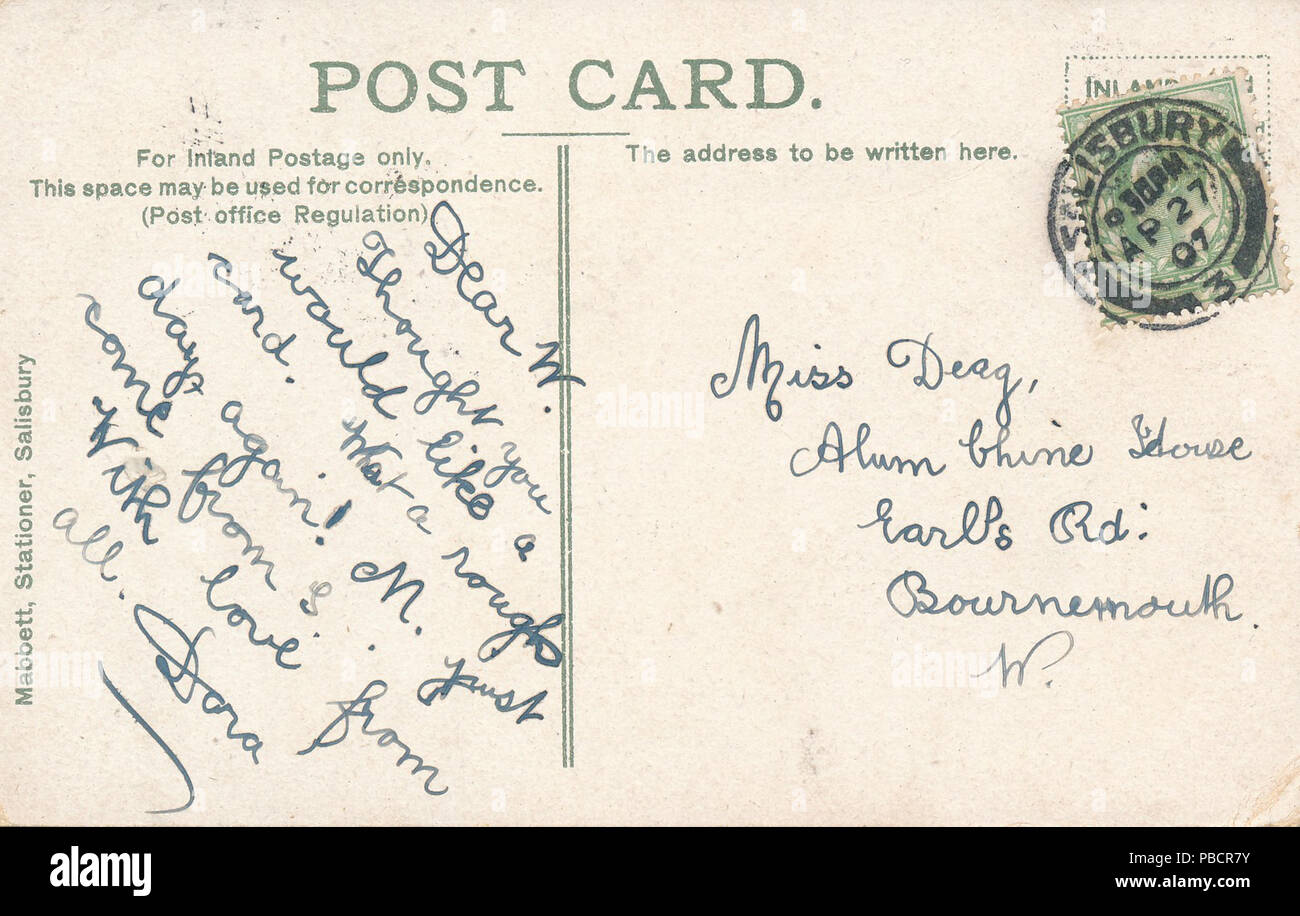 POST CARD.
For Inland Postage only.
This space may be used for correspondence.
(Post office Regulation)
The address to be written here.
INLAND
SALISBURY
9 30PM
AP 27
07
3
Dear W.
Thought you
would like a
card. What a rough
day again! M. just
come from S.
With love from
all. Dora
Miss Deag,
Alum Chine House
Earl's Rd:
Bournemouth.
W.
Mabbett, Stationer, Salisbury
alamy
alamy stock photo
PBCR7Y
www.alamy.com